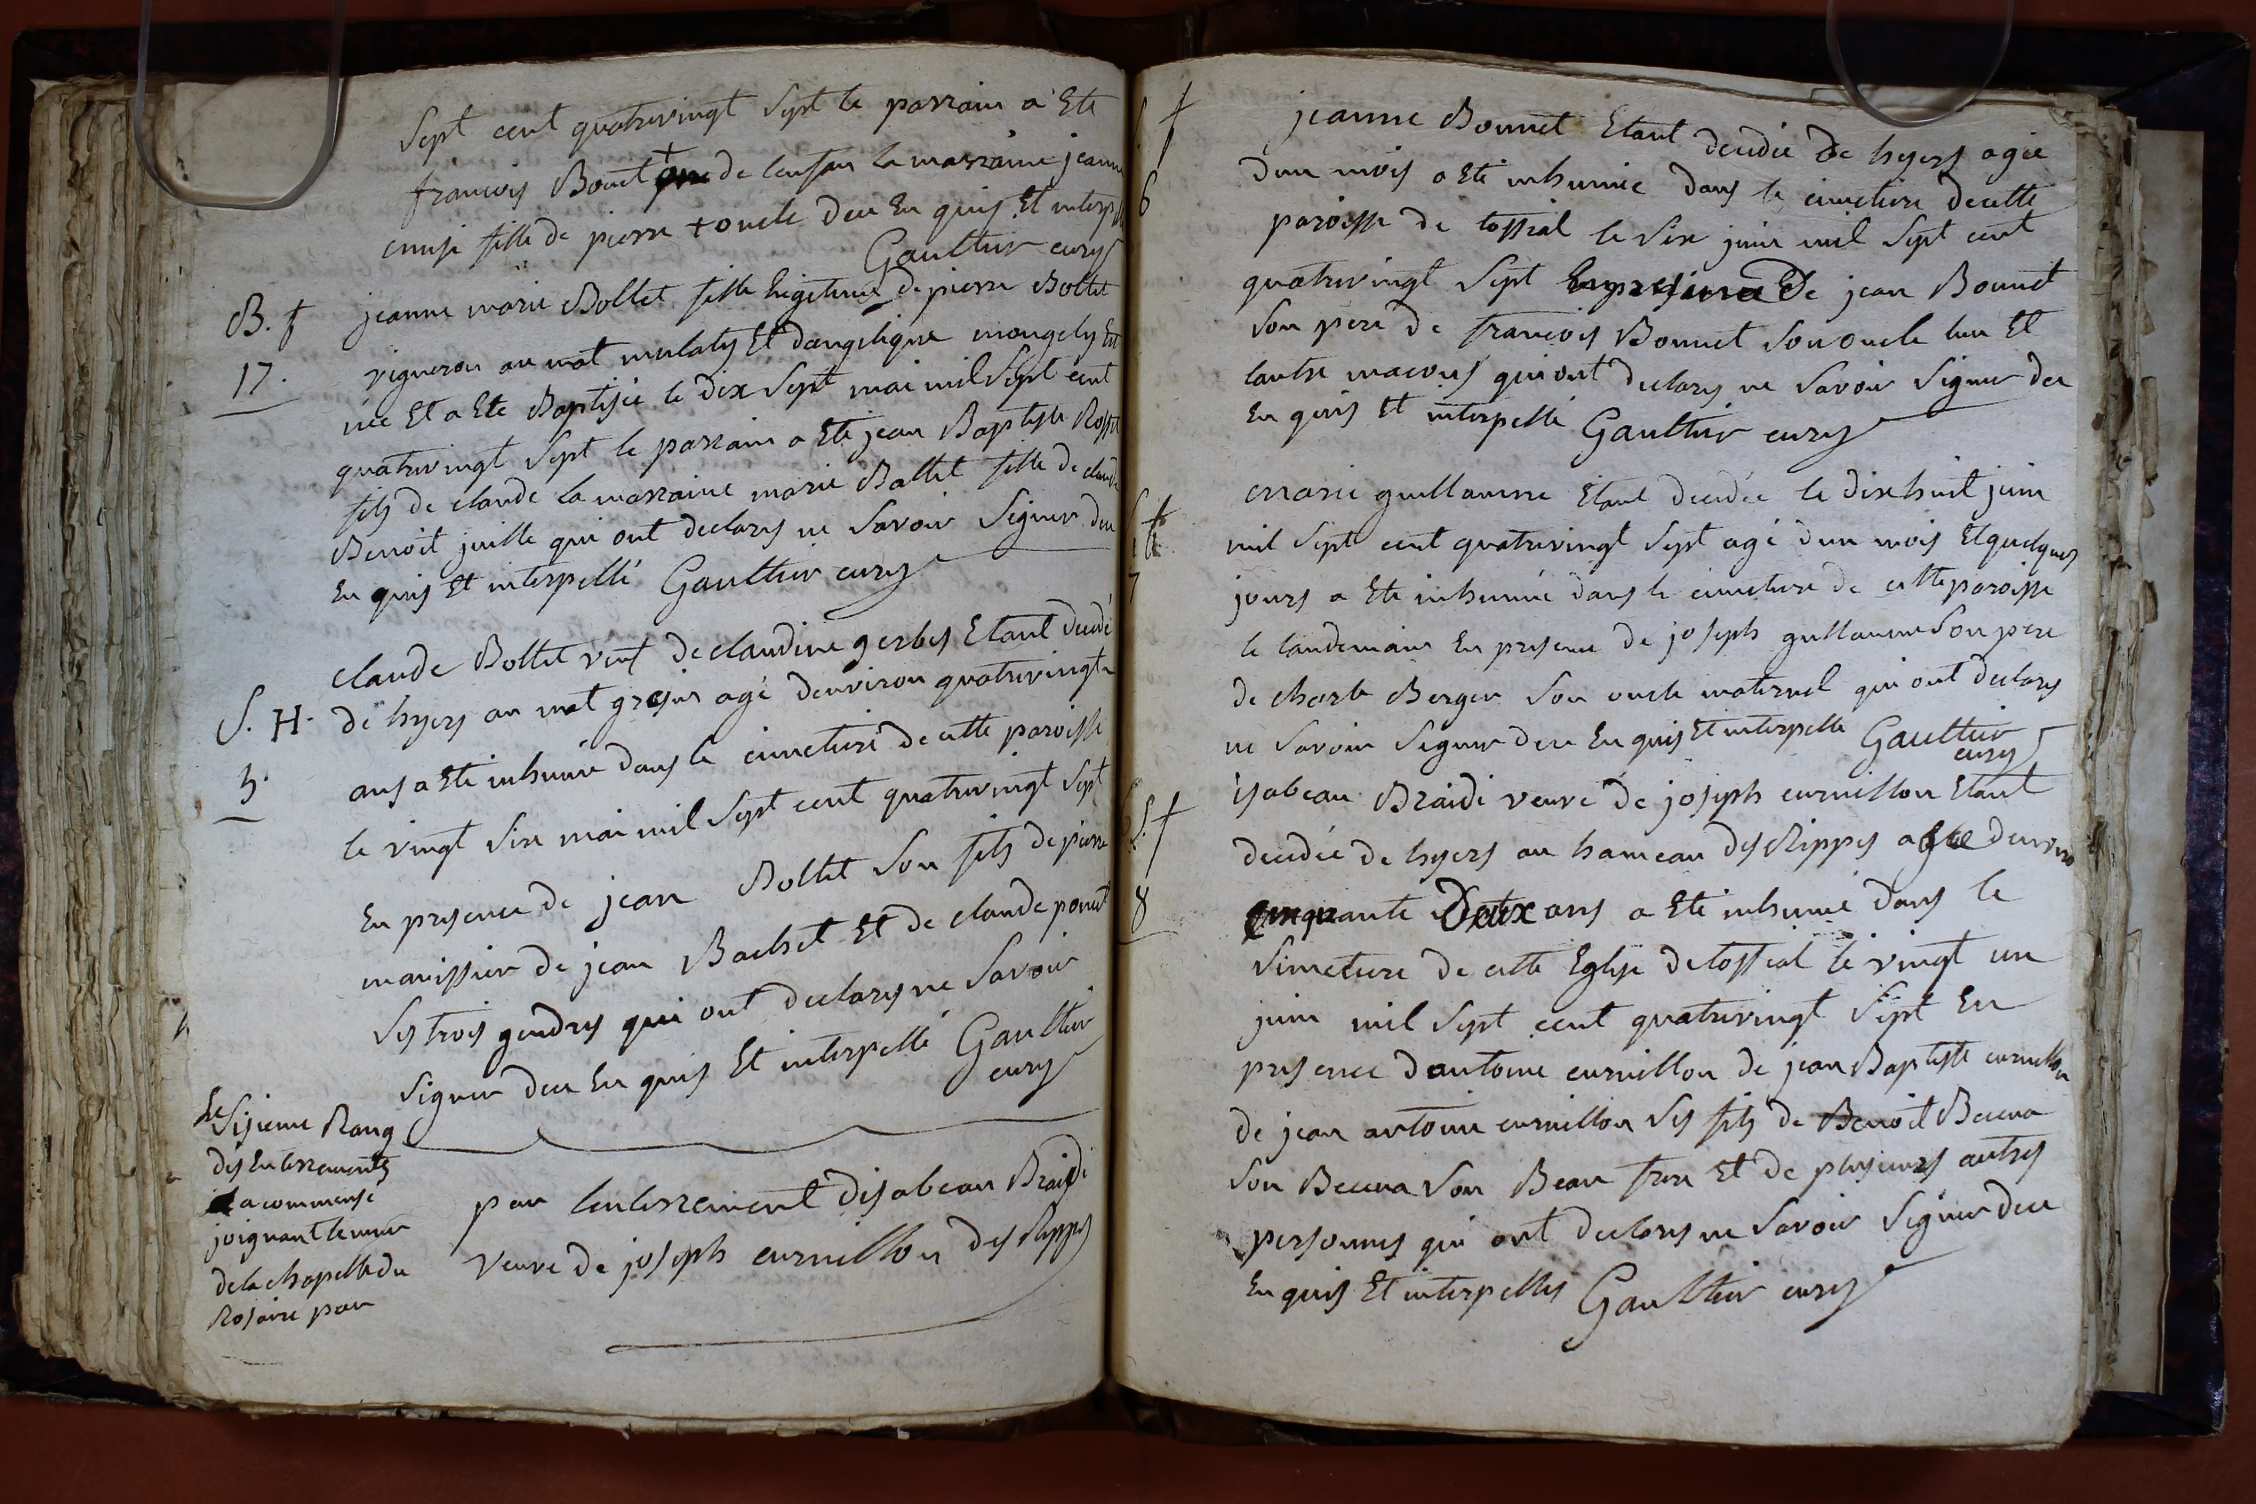 Sept cent quatrevingt Sept le parrain a Ete
francois Bonnet + de lenfan la marraine jeanne
fille de pierre + oncle deu En quis Et interpellé
Gaultier curé
B. f
17.
jeanne marie Bollet fille legitime de pierre Bollet
vigneron au mat mulaty Et dangelique mongely Est
née Et a Ete Baptisée le dix Sept mai mil Sept cent
quatrevingt Sept le parrain a Eté jean Baptiste
fils de claude la marraine marie Bollet fille de claude
Benoit juille qui ont declarés ne Savoir Signer deu
En quis Et interpellé Gaultier curé
S. H.
5.
claude Bollet veuf de claudine gerbes Etant decedé
de hyers au mat grosjus agé denviron quatrevingt
ans a Eté inhumé dans le cimetiere de cette paroisse
le vingt Six mai mil Sept cent quatrevingt Sept
En presence de jean Bollet Son fils de pierre
manissier de jean Bachet Et de claude poncet
Ses trois gendres qui ont declarés ne Savoir
Signer deu En quis Et interpellé Gaultier
curé
Le Sisieme Rang
des Enterrements
a commensé
joignant le mur
de la chapelle du
Rosaire par
par lenterrement disabeau Braidi
veuve de joseph curnillon des Rippes
f
6
jeanne Bonnet Etant decedée de hyers agée
dun mois a Eté inhumée dans le cimetiere de cette
paroisse de tossiat le Six juin mil Sept cent
quatrevingt Sept En presence de jean Bonnet
Son pere de francois Bonnet Son oncle lun Et
lautre macons qui ont declarés ne Savoir Signer deu
En quis Et interpellé Gaultier curé
7
marie guillaume Etant decedée le dix huit juin
mil Sept cent quatrevingt Sept agé dun mois Et quelques
jours a Eté inhumé dans le cimetiere de cette paroisse
le landemain En presence de joseph guillaume Son pere
de charle Berger Son oncle maternel qui ont declarés
ne Savoir Signer deu En quis Et interpelle Gaultier
curé
S. f
8
isabeau Braidi veuve de joseph curnillon Etant
decedée de hyers au hameau des Rippes agée denviron
cinquante Deux ans a Eté inhumé dans le
Simetiere de cette Eglise de tossiat le vingt un
juin mil Sept cent quatrevingt Sept En
presence dantoine curnillon de jean Baptiste curnillon
de jean antoine curnillon Ses fils de Benoit Becuva
Son Becuva Son Beau frere Et de plusieurs autres
personnes qui ont declarés ne Savoir Signer deu
En quis Et interpellés Gaultier curé